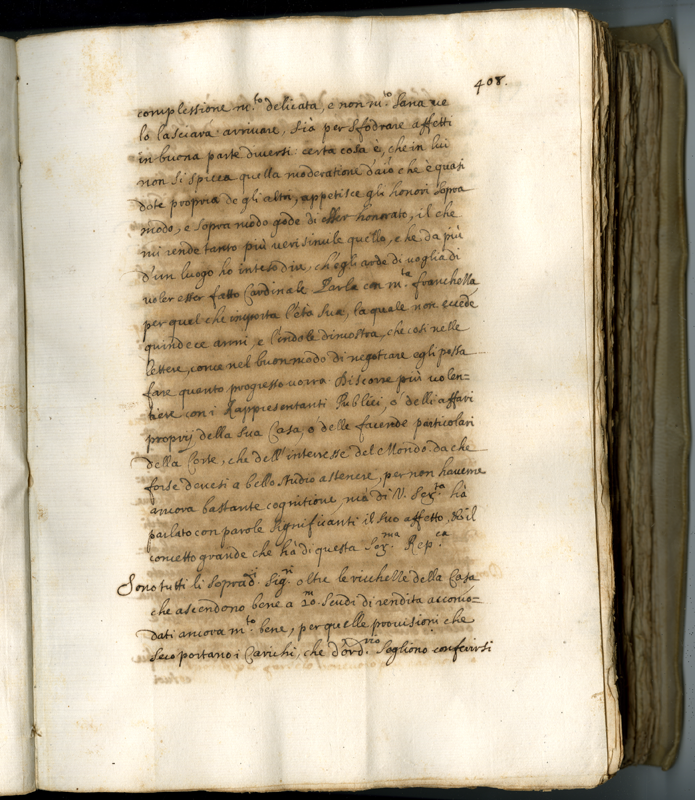 408.
complessione m.to delicata, e non m.to sana ve
lo lasciarà arriuare, sia per sfodrare affetti
in buona parte diuersi certa cosa è, che in lui
non si spicca quella moderatione d'aīo che è quasi
dote propria de gli altri, appetisce gli honori sopra
modo, e sopra modo gode di esser honorato, il che
mi rende tanto più verisimile quello, che da più
d'un luogo ho inteso dire, ch'egli arde di voglia di
voler esser fatto Cardinale Parla con m.ta franchezza
per quel che importa l'età sua, la quale non eccede
quindece anni, e l'indole dimostra, che così nelle
lettere, come nel buon modo di negotiare egli possa
fare quanto progresso vorrà Discorre più volen=
tiere con i Rappresentanti Publici, ò delli affari
proprij della sua Casa, ò delle facende particolari
della Corte, che dell'interesse del Mondo. da che
forse deuesi a bello studio astenere, per non hauerne
ancora bastante cognitione, mà di V. Ser.tà hà
parlato con parole significanti il suo affetto, & il
concetto grande che hà di questa Ser.ma Rep.ca
Sono tutti li soprad.i Sig.ri oltre le ricchezze della Casa
che ascendono bene a 20.m scudi di rendita accomo=
dati ancora m.to bene, per quelle prouisioni che
seco portano i Carichi, che d'ord.rio sogliono conferirsi